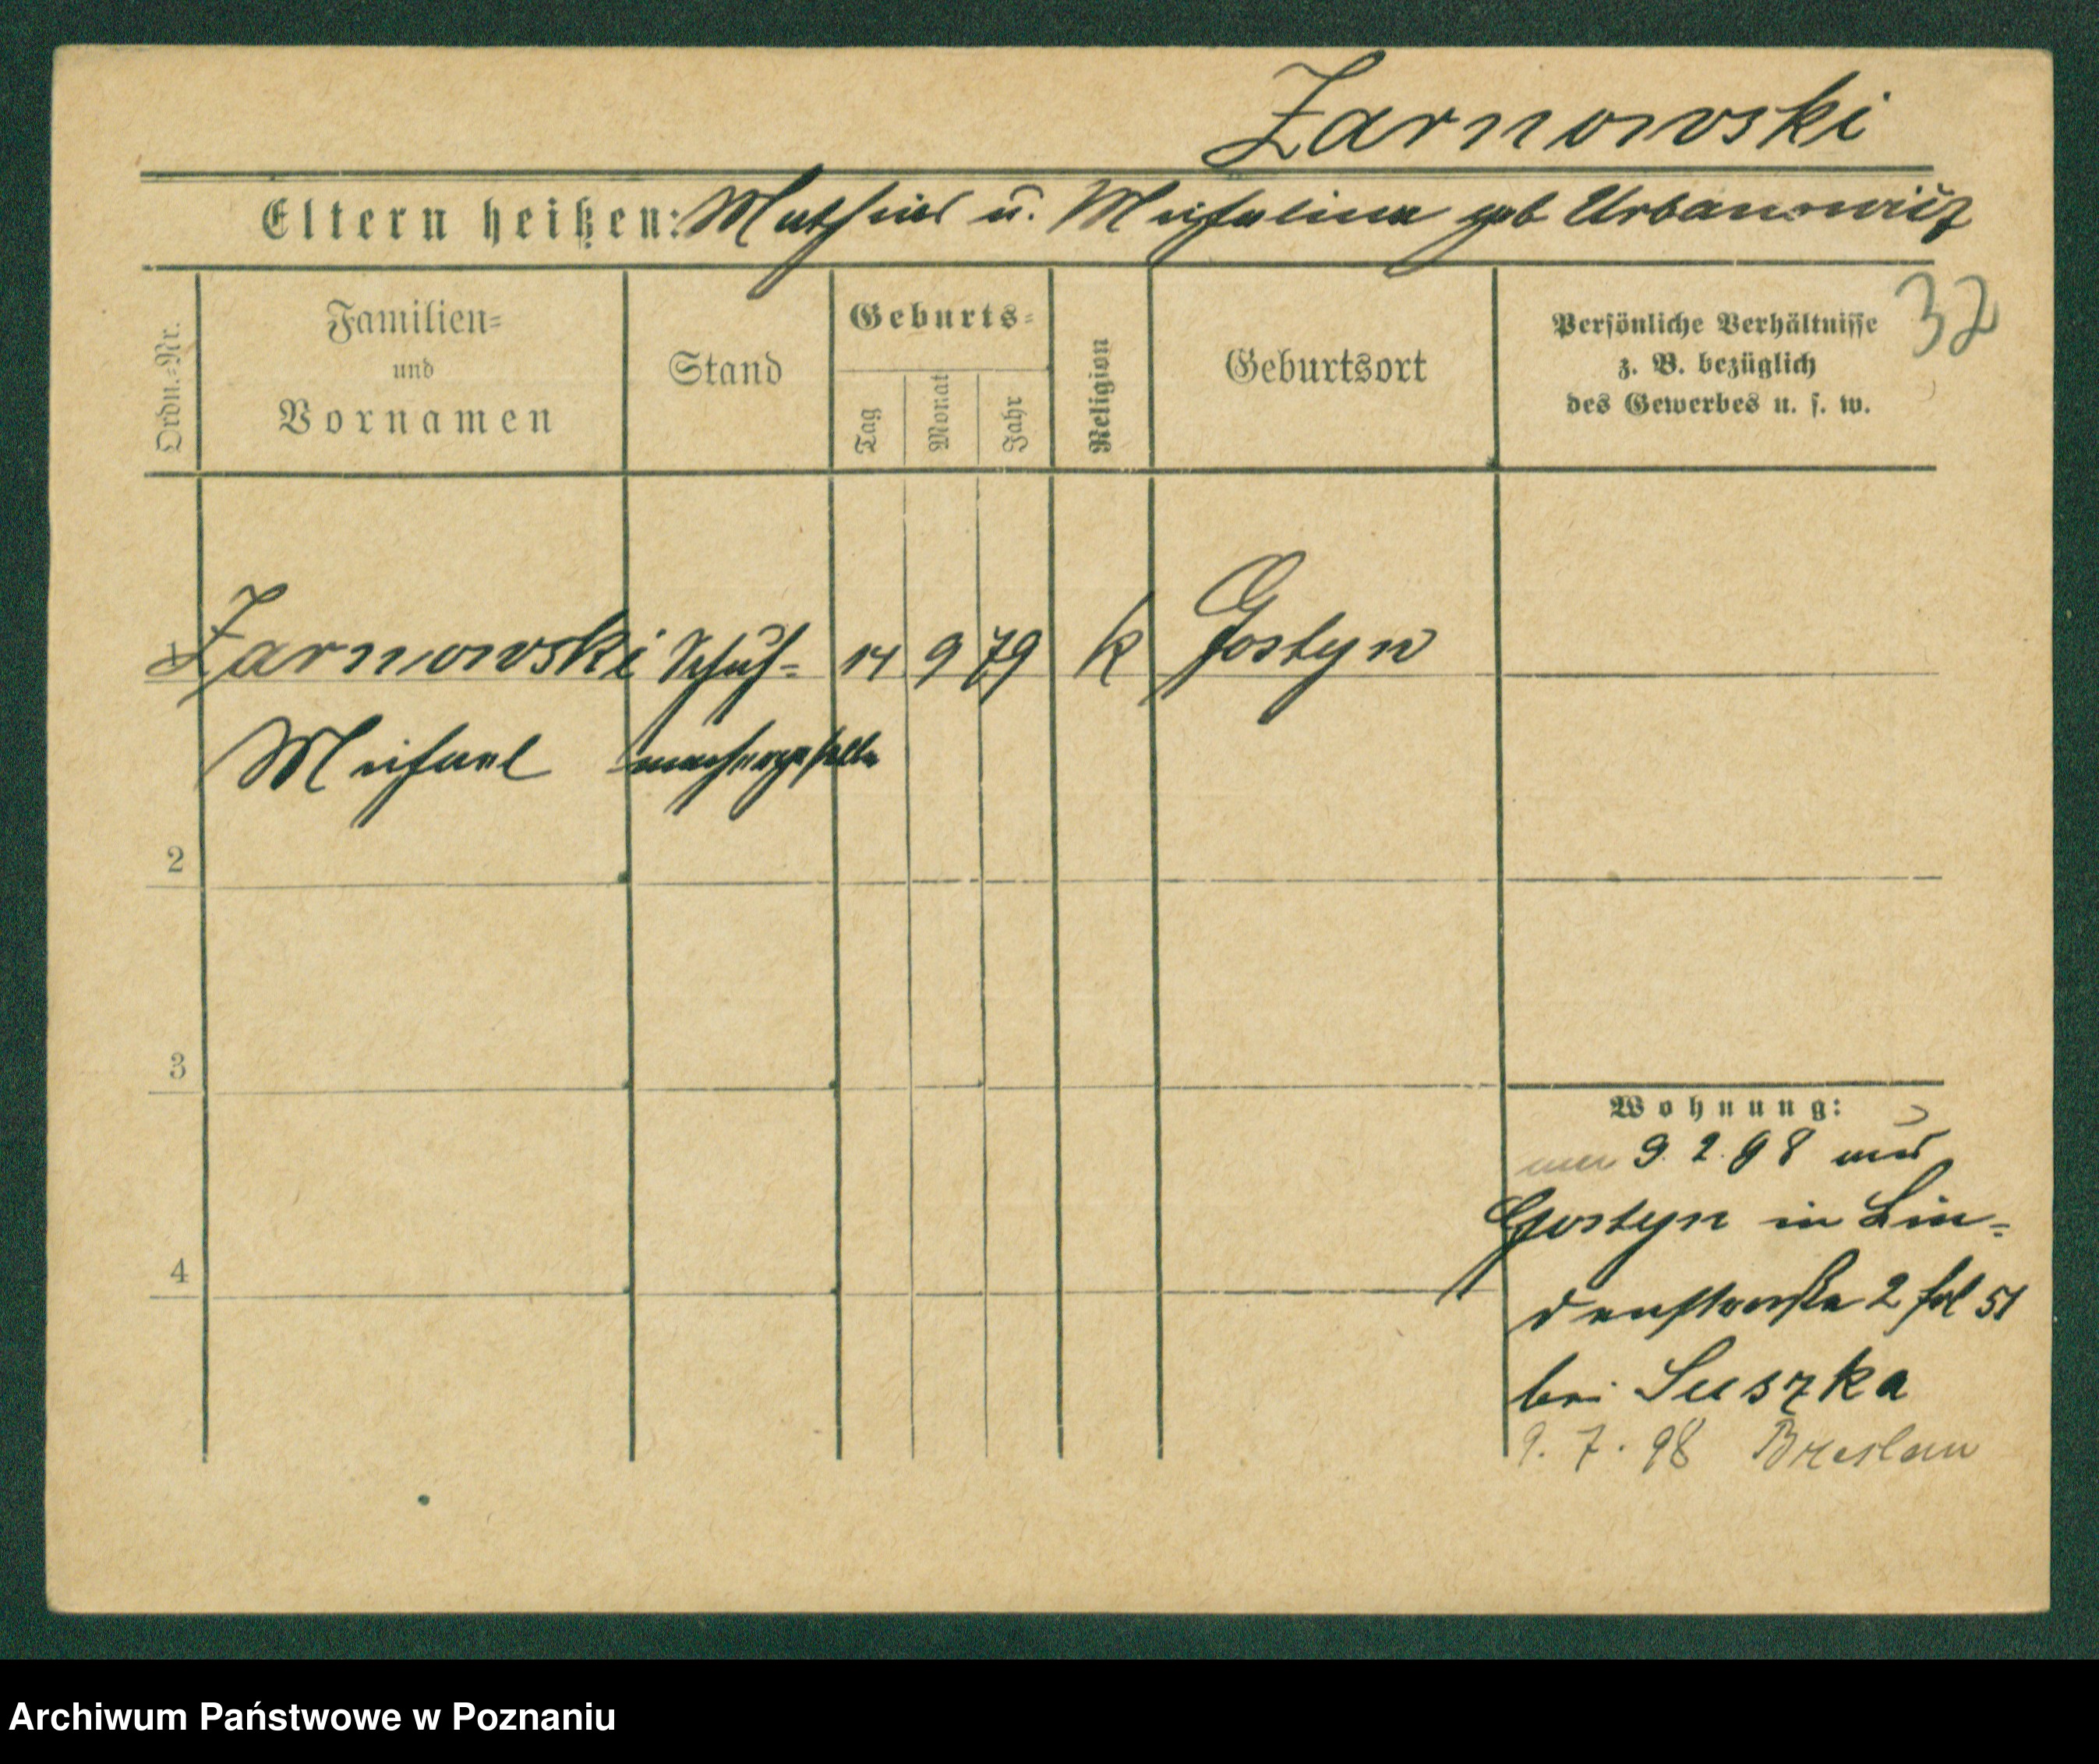 Zarnowski
Eltern heißen: Mathias u. Michalina geb Urbanowicz
32
Ordn.=Nr.
Familien=
und
Vornamen
Stand
Geburts=
Tag
Monat
Jahr
Religion
Geburtsort
Persönliche Verhältnisse
z. B. bezüglich
des Gewerbes u. s. w.
1 Zarnowski Schuh= 14 9 79 k Gostyn
Michael machergeselle
2
3
4
Wohnung:
am 9. 2. 98 aus
Gostyn in Lin=
denstraße 2 fol 51
bei Suszka
9. 7. 98 Breslau
Archiwum Państwowe w Poznaniu